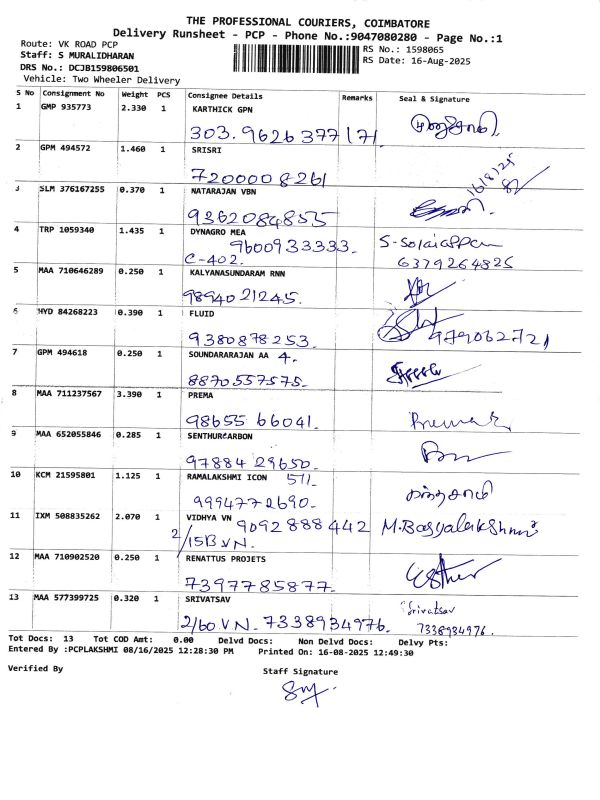 THE PROFESSIONAL COURIERS, COIMBATORE
Delivery Runsheet - PCP - Phone No.:9047080280 - Page No.:1
Route: VK ROAD PCP
Staff: S MURALIDHARAN
DRS No.: DCJB159806501
Vehicle: Two Wheeler Delivery
RS No.: 1598065
RS Date: 16-Aug-2025
S No Consignment No Weight PCS Consignee Details Remarks Seal & Signature
1 GMP 935773 2.330 1 KARTHICK GPN
303. 9626377171
2 GPM 494572 1.460 1 SRISRI
7200008261
16/8/25
3 SLM 376167255 0.370 1 NATARAJAN VBN
9362084855
4 TRP 1059340 1.435 1 DYNAGRO MEA
9600933333. S-Solaiappan
C-402. 6379264825
5 MAA 710646289 0.250 1 KALYANASUNDARAM RNN
9894021245.
6 HYD 84268223 0.390 1 FLUID
9380878253. 979062721
7 GPM 494618 0.250 1 SOUNDARARAJAN AA 4.
8870557575.
8 MAA 711237567 3.390 1 PREMA
98655 66041.
9 MAA 652055846 0.285 1 SENTHURCARBON
97884 29650.
10 KCM 21595801 1.125 1 RAMALAKSHMI ICON 511.
9994772690.
11 IXM 508835262 2.070 1 VIDHYA VN 9092888442 M.Bagyalakshmi
2/15B VN.
12 MAA 710902520 0.250 1 RENATTUS PROJETS
7397785877. Esther
13 MAA 577399725 0.320 1 SRIVATSAV Srivatsav
2/60 VN. 7338934976. 7338934976.
Tot Docs: 13 Tot COD Amt: 0.00 Delvd Docs: Non Delvd Docs: Delvy Pts:
Entered By :PCPLAKSHMI 08/16/2025 12:28:30 PM Printed On: 16-08-2025 12:49:30
Verified By Staff Signature